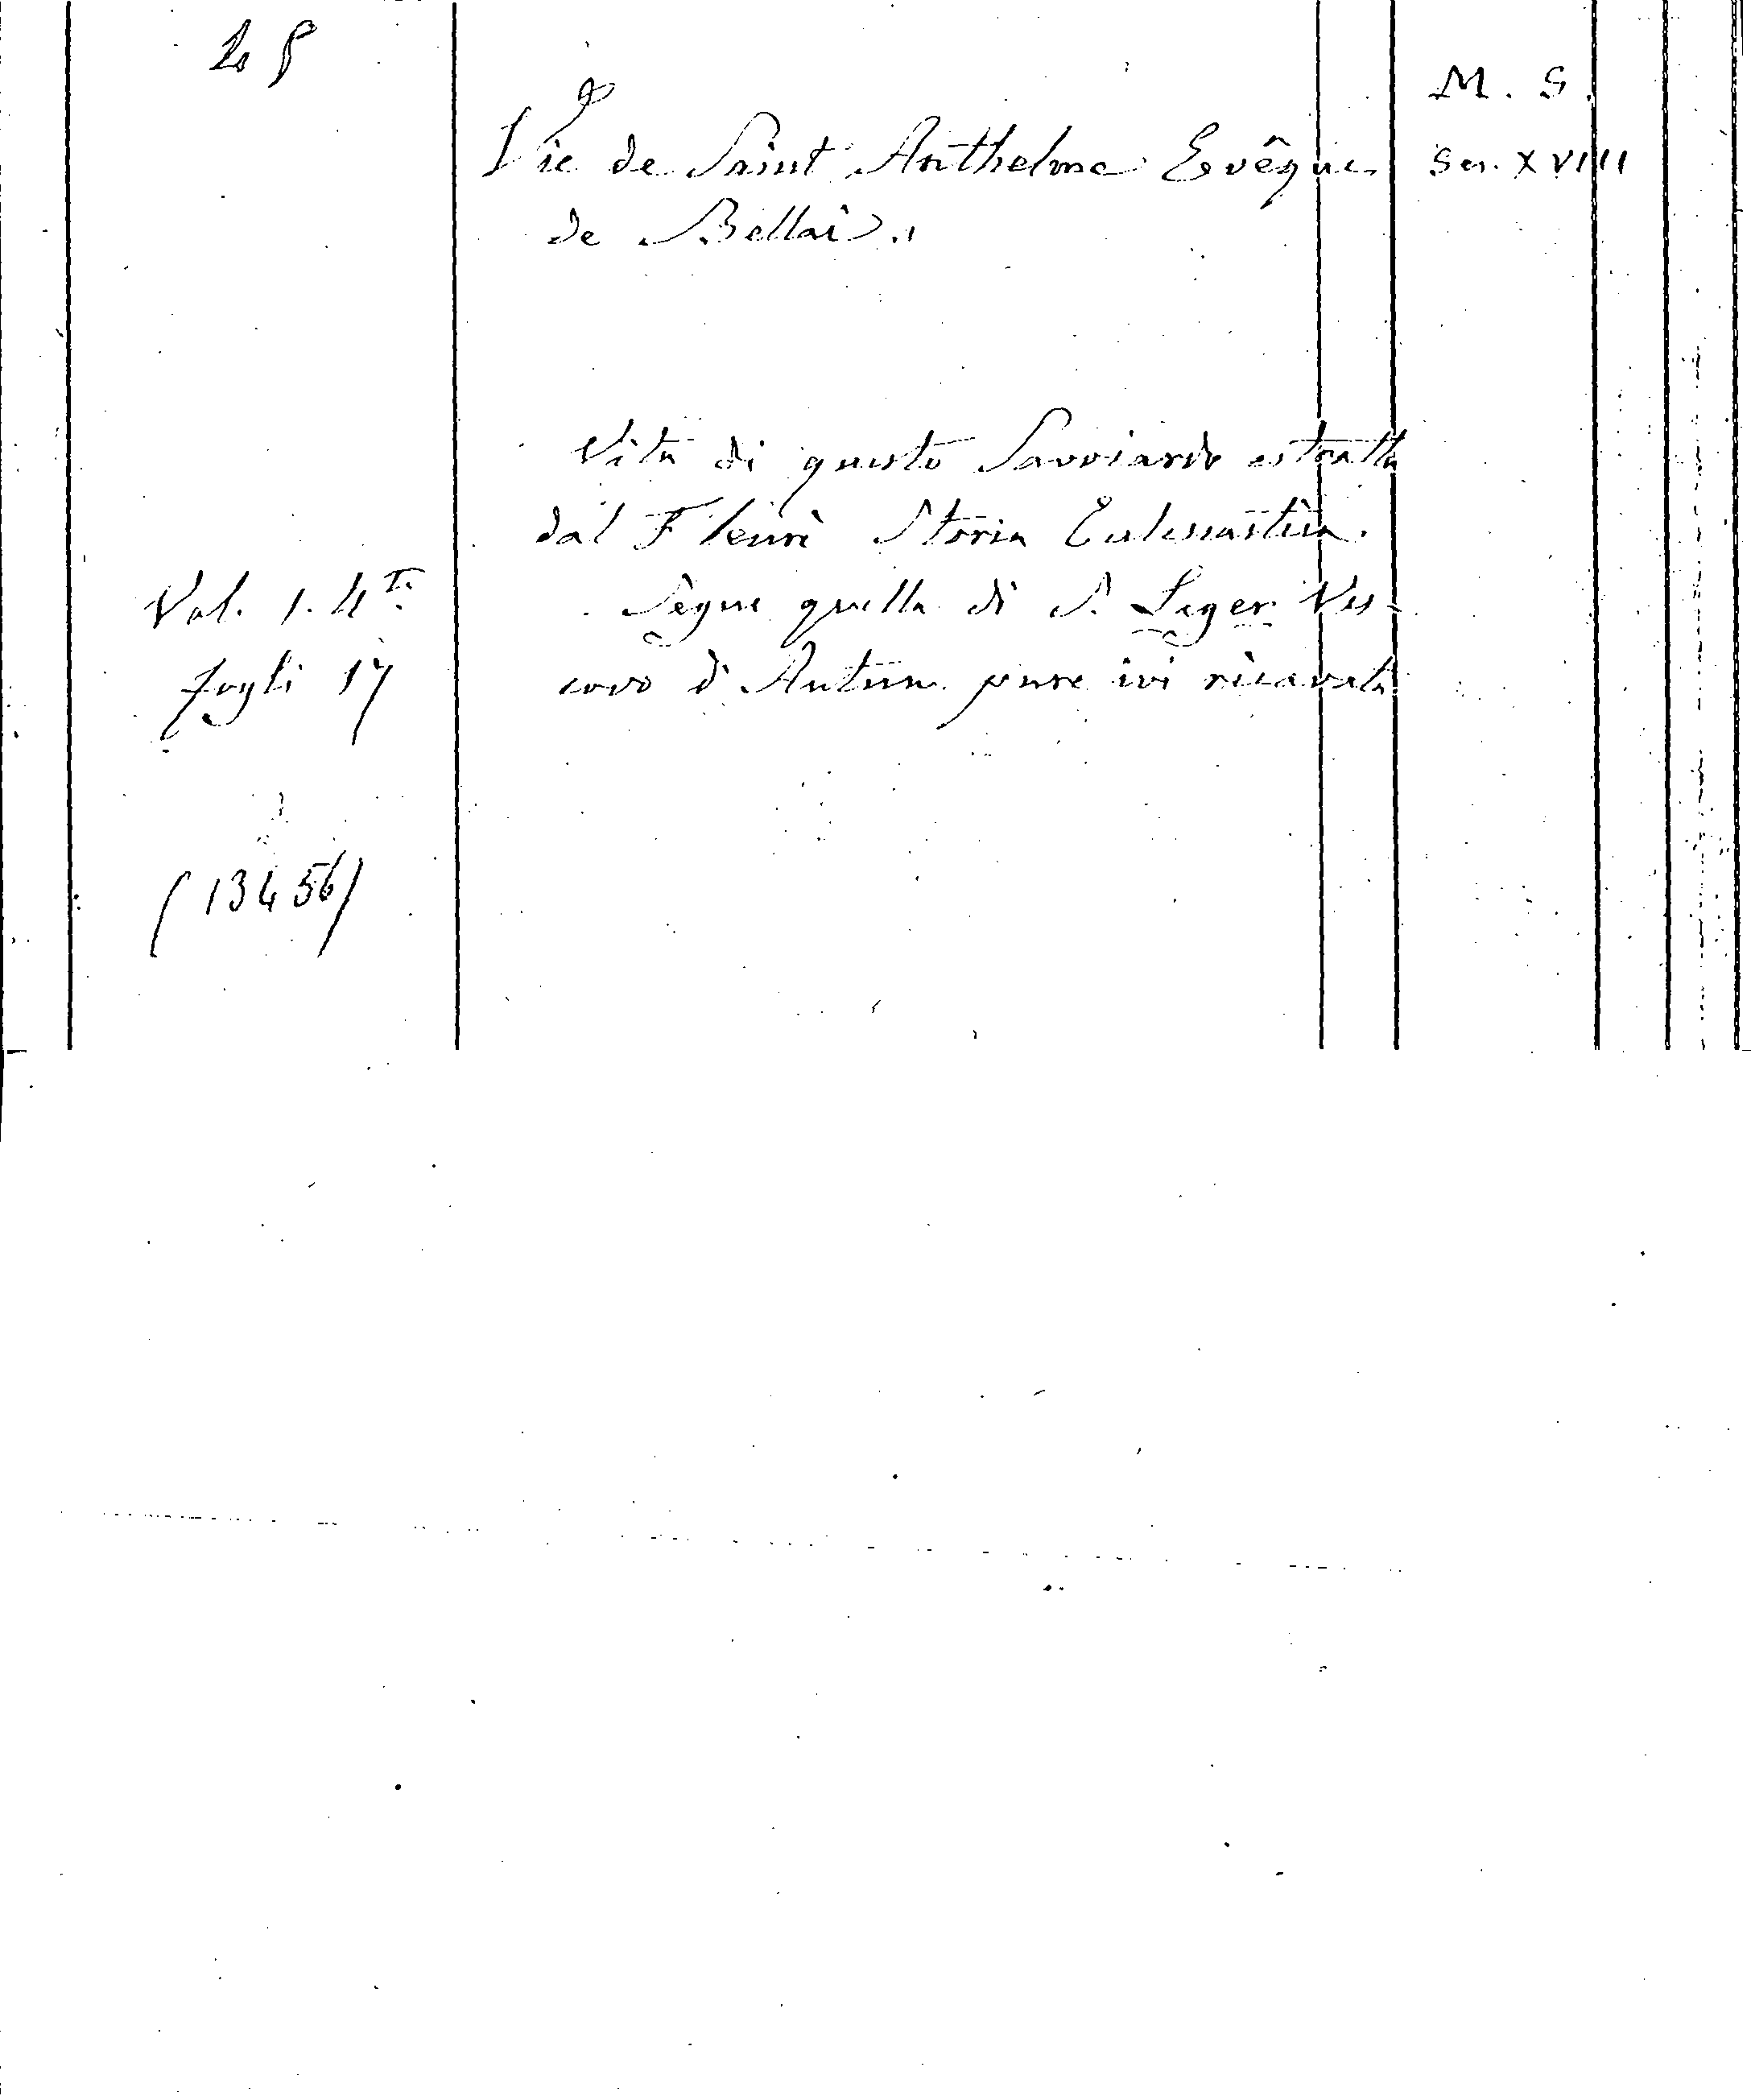 M. S.
Vie de Saint Anthelme Evêque
Sec. XVIII
de Bellai.
Vita di questo Savoiardo estratta
dal Fleurì Storia Eclesiastica.
Vol. 1. 4to.
Segue quella di S. Leger Ves-
fogli 17
covo d'Autun pure ivi ricavata
(13456)